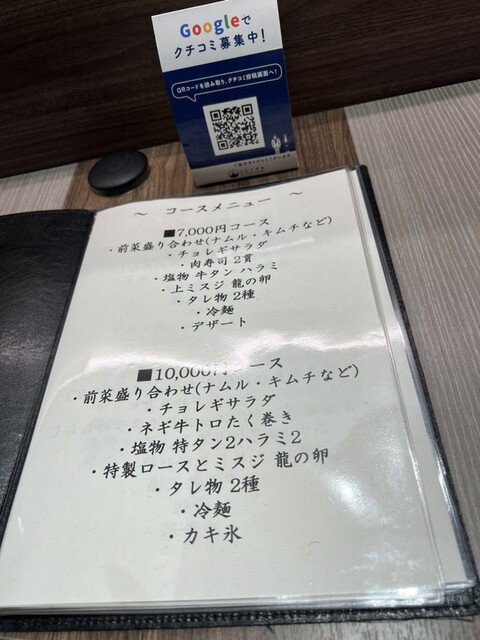 Googleで
クチコミ募集中!
QRコードを読み取り、クチコミ投稿画面へ!
～ コースメニュー ～
■7,000円コース
・前菜盛り合わせ(ナムル・キムチなど)
・チョレギサラダ
・肉寿司 2貫
・塩物 牛タン ハラミ
・上ミスジ 龍の卵
・タレ物 2種
・冷麺
・デザート
■10,000円コース
・前菜盛り合わせ(ナムル・キムチなど)
・チョレギサラダ
・ネギ牛トロたく巻き
・塩物 特タン2ハラミ2
・特製ロースとミスジ 龍の卵
・タレ物 2種
・冷麺
・カキ氷